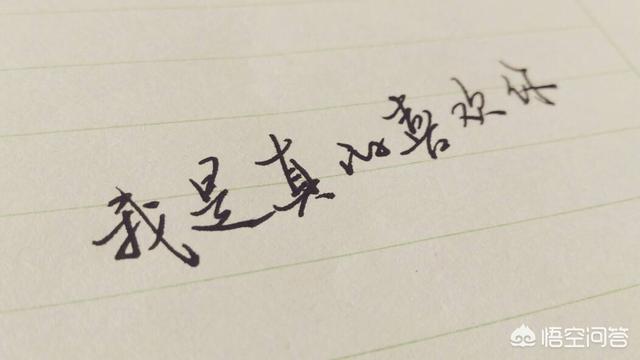 我是真心喜欢你
悟空问答